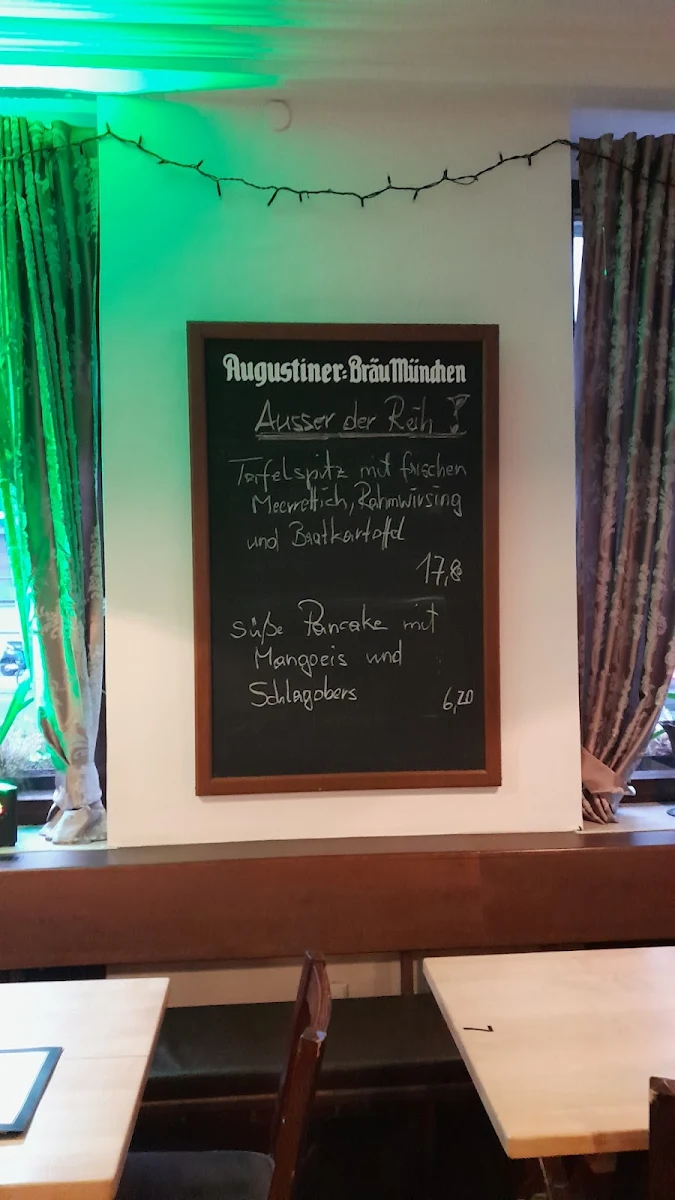 Augustiner-Bräu München
Ausser der Reih !
Tafelspitz mit frischen
Meerrettich, Rahmwirsing
und Bratkartoffel
17,8
süße Pancake mit
Mangoeis und
Schlagobers
6,20